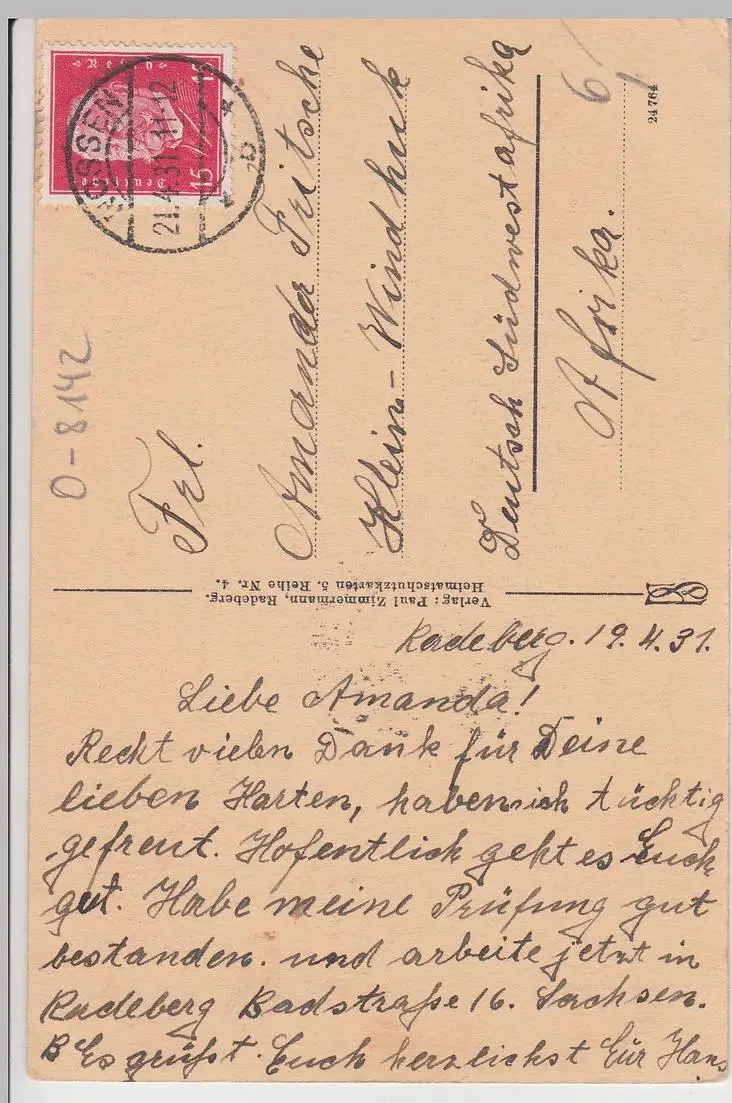 Deutsches Reich
15 15
NOSSEN
21.4.31.11-12
b
O-8142
6
Frl.
Amanda Fritsche
Klein-Windhuk
Deutsch Südwestafrika
Afrika.
24764
Verlag: Paul Zimmermann, Radeberg.
Heimatschutzkarten 5. Reihe Nr. 4.
Radeberg. 19.4.31.
Liebe Amanda!
Recht vielen Dank für Deine
lieben Karten, haben mich tüchtig
gefreut. Hofentlich geht es Euch
gut. Habe meine Prüfung gut
bestanden. und arbeite jetzt in
Radeberg Badstraße 16. Sachsen.
Es grüßt Euch herzlichst Eür Hans